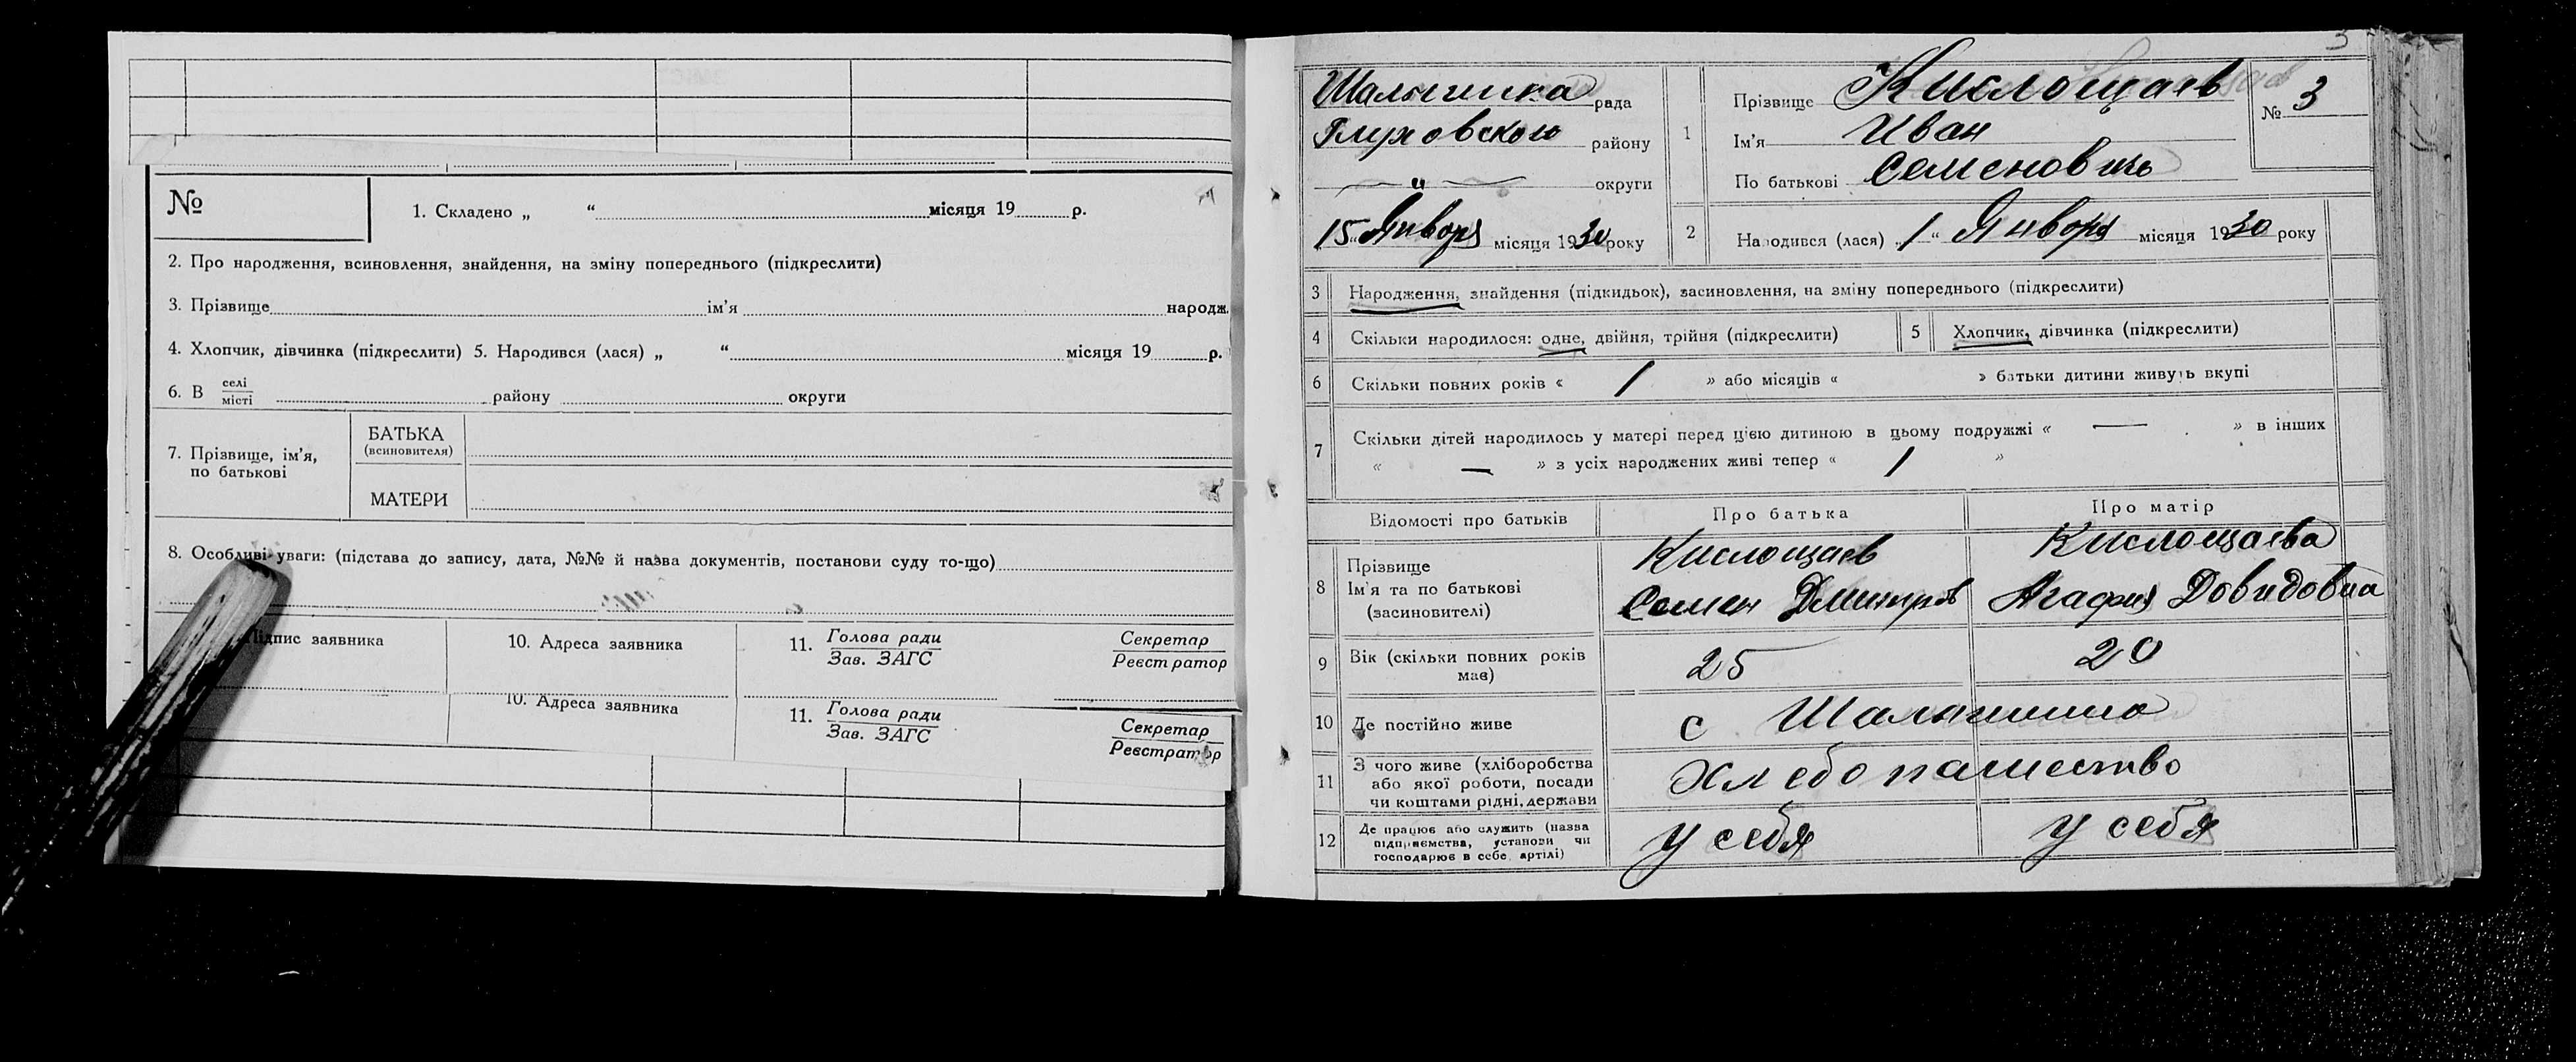 №
1. Складено „ “ місяця 19 р.
2. Про народження, всиновлення, знайдення, на зміну попереднього (підкреслити)
3. Прізвище ім’я народж.
4. Хлопчик, дівчинка (підкреслити) 5. Народився (лася) „ “ місяця 19 р.
6. В селі місті району округи
7. Прізвище, ім’я, по батькові
БАТЬКА
(всиновителя)
МАТЕРИ
8. Особливі уваги: (підстава до запису, дата, №№ й назва документів, постанови суду то-що)
Підпис заявника
10. Адреса заявника
11. Голова ради
Зав. ЗАГС
Секретар
Реєстратор
10. Адреса заявника
11. Голова ради
Зав. ЗАГС
Секретар
Реєстратор
3
Шалыгинка рада
Глуховского району
" округи
15 " Января місяця 1930 року
1
Прізвище Кислощаев
Ім’я Иван
По батькові Семенович
№ 3
2 Народився (лася) „ 1 “ Января місяця 1930 року
3 Народження, знайдення (підкидьок), засиновлення, на зміну попереднього (підкреслити)
4 Скільки народилося: одне, двійня, трійня (підкреслити) 5 Хлопчик, дівчинка (підкреслити)
6 Скільки повних років « 1 » або місяців « » батьки дитини живуть вкупі
7 Скільки дітей народилось у матері перед цією дитиною в цьому подружжі « — » в інших
« — » з усіх народжених живі тепер « 1 »
Відомості про батьків Про батька Про матір
8 Прізвище Кислощаев Кислощаева
Ім’я та по батькові Семен Дмитров Агафия Довидовна
(засиновителі)
9 Вік (скільки повних років має) 25 20
10 Де постійно живе с Шалыгинка
11 З чого живе (хліборобства або якої роботи, посади чи коштами рідні, держави Хлебопашество
12 Де працює або служить (назва підприємства, установи чи господарює в себе, артілі) у себя у себя